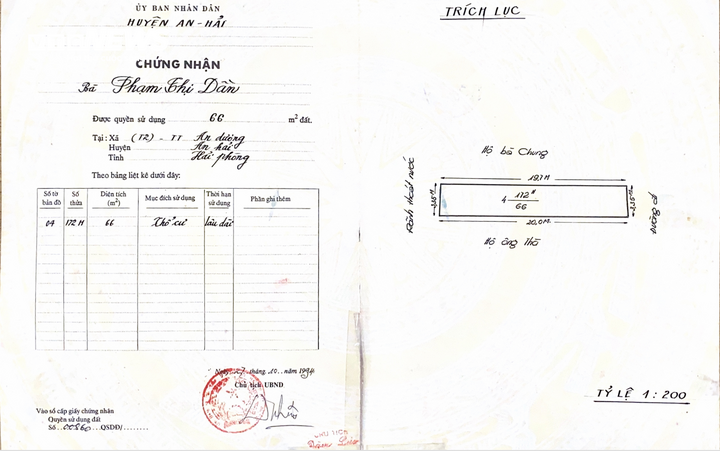 ỦY BAN NHÂN DÂN
HUYỆN AN-HẢI
CHỨNG NHẬN
Bà Phạm Thị Dần
Được quyền sử dụng 66 m² đất.
Tại: Xã (T2) - TT An dương
Huyện An hải
Tỉnh Hải phòng
Theo bảng liệt kê dưới đây:
Số tờ bản đồ | Số thửa | Diện tích (m²) | Mục đích sử dụng | Thời hạn sử dụng | Phần ghi thêm
04 | 172 H | 66 | Thổ cư | lâu dài
Ngày 27 tháng 10 năm 1994
Chủ tịch UBND
Vào sổ cấp giấy chứng nhận
Quyền sử dụng đất
Số 00860 QSDĐ/
CHỦ TỊCH
TRÍCH LỤC
Hộ bà Chung
19,7 M
Rãnh thoát nước
4 172 H
66
20,0 M
Hộ ông Thả
TỶ LỆ 1 : 200